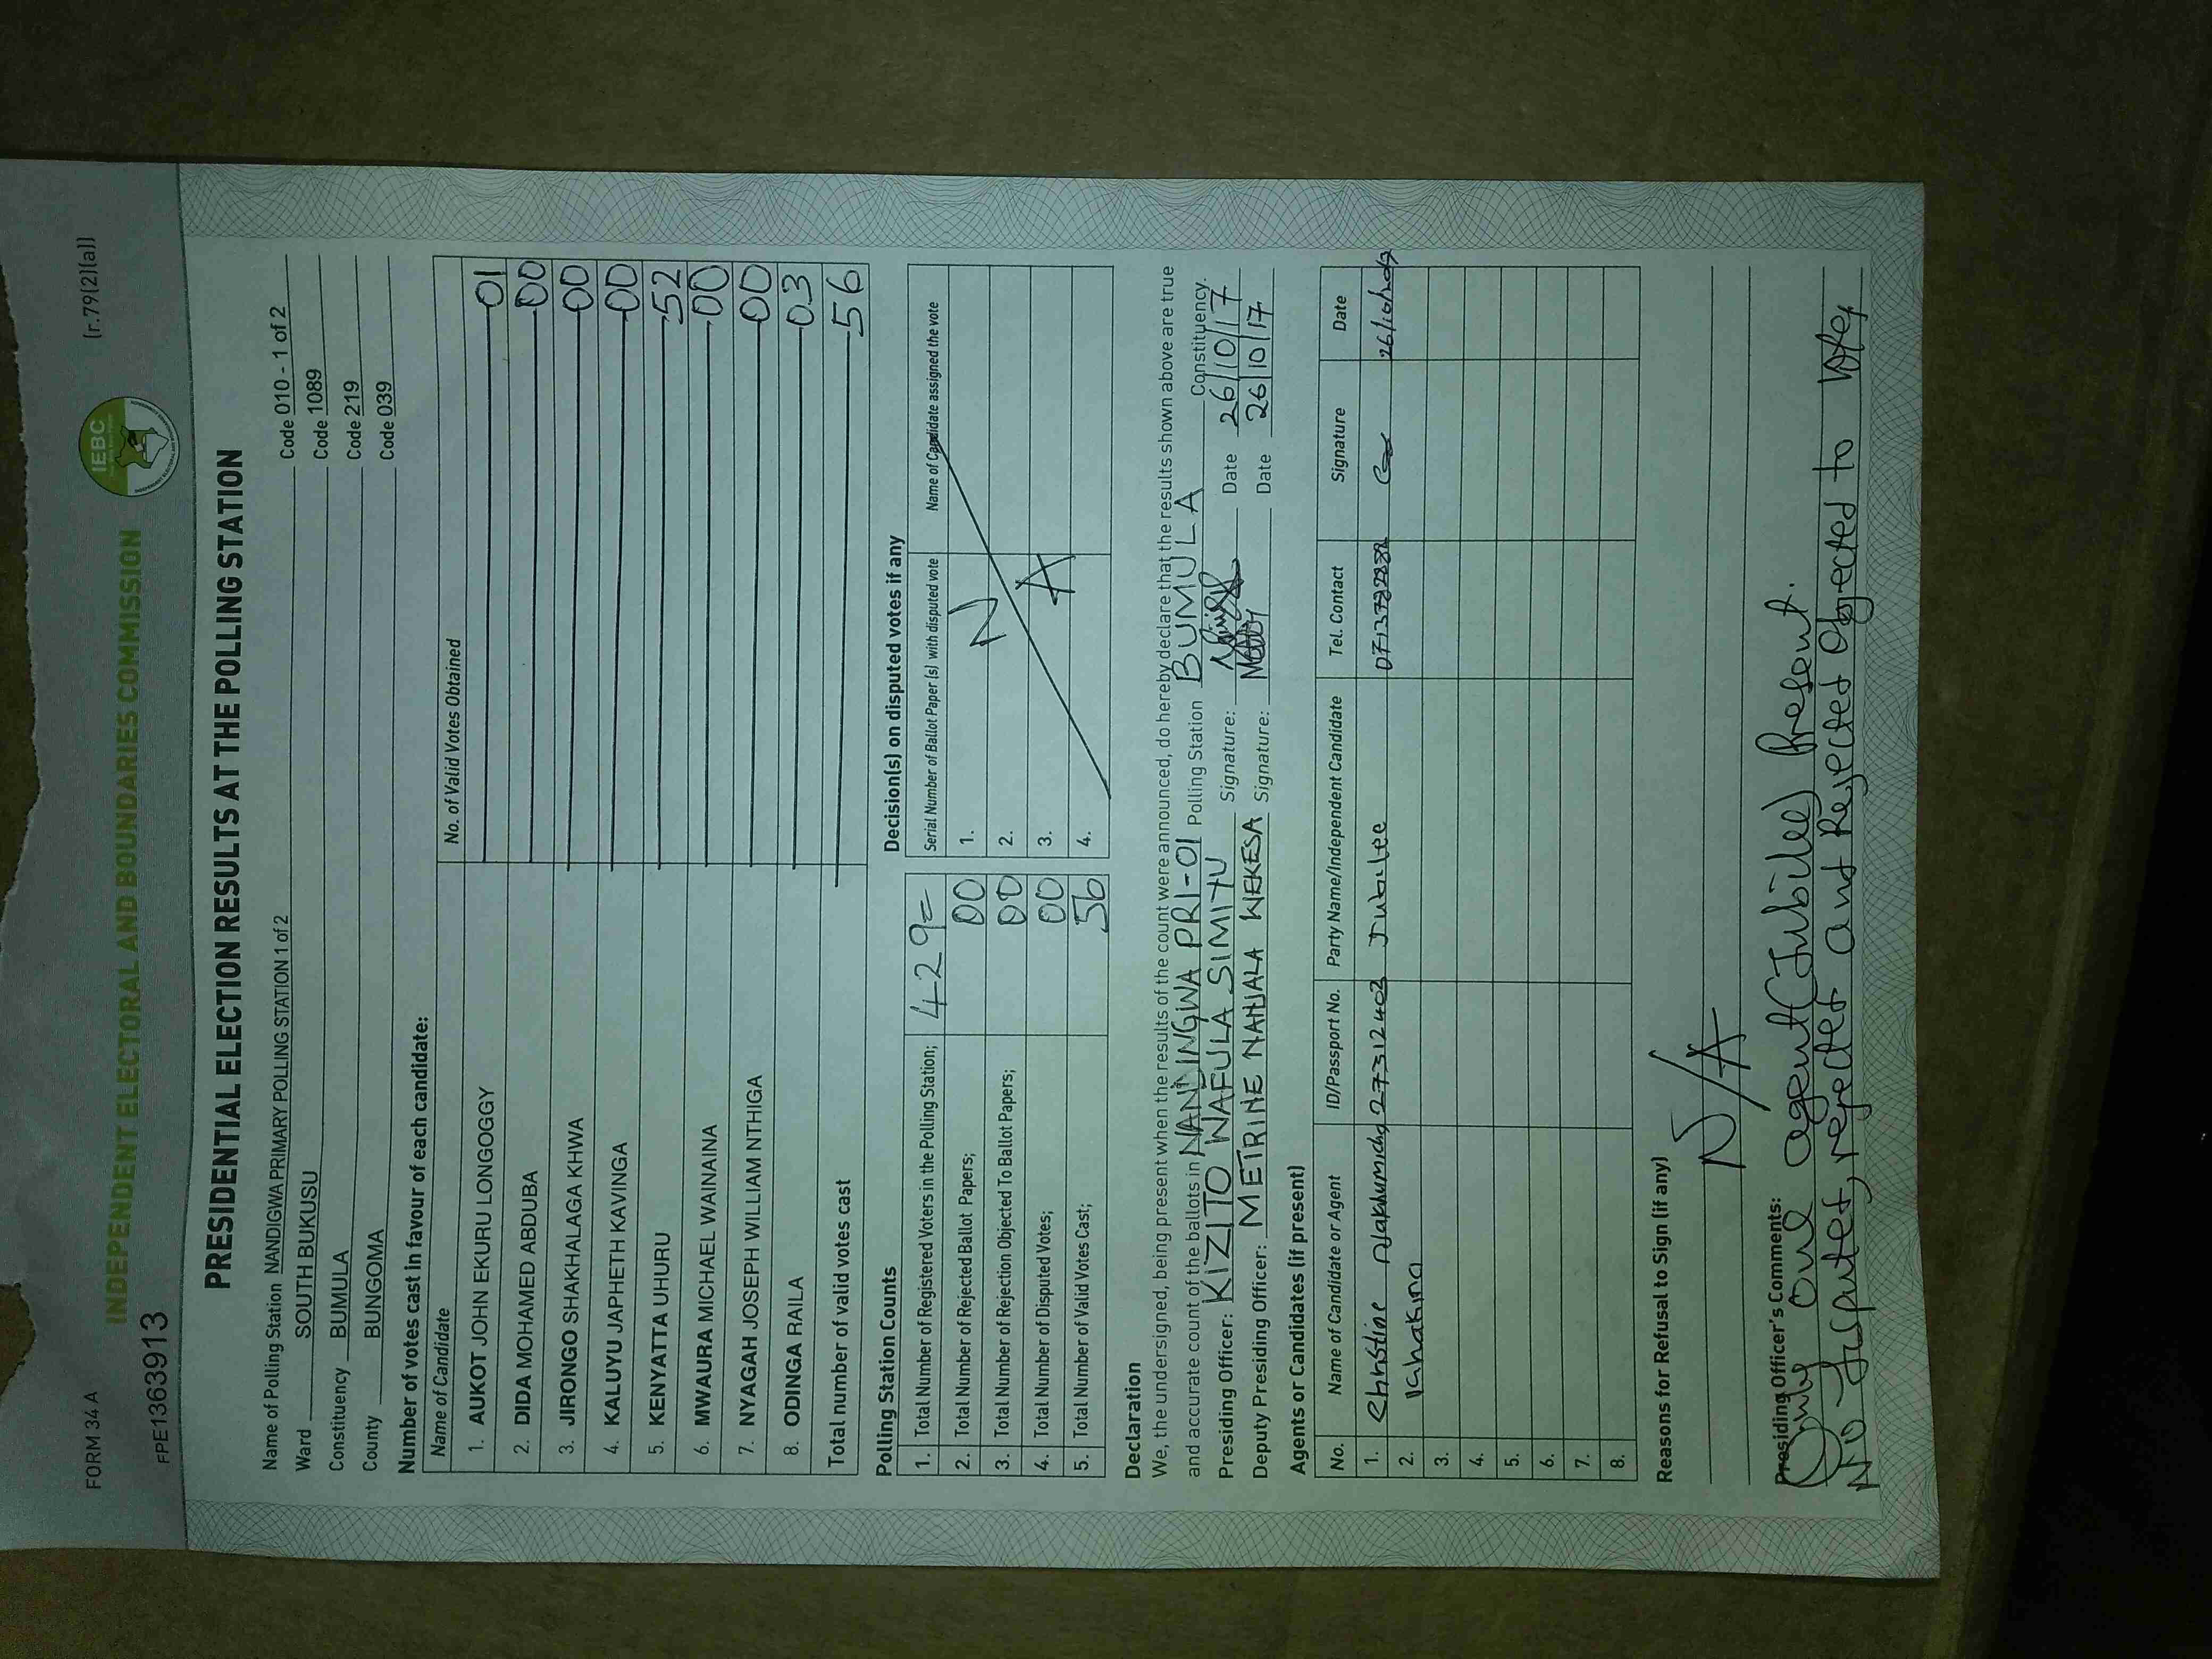 FORM 34 A
[r.79(2)(a)]
INDEPENDENT ELECTORAL AND BOUNDARIES COMMISSION
IEBC
FPE1363913
PRESIDENTIAL ELECTION RESULTS AT THE POLLING STATION
Name of Polling Station NANDIGWA PRIMARY POLLING STATION 1 of 2 Code 010 - 1 of 2
Ward SOUTH BUKUSU Code 1089
Constituency BUMULA Code 219
County BUNGOMA Code 039
Number of votes cast in favour of each candidate:
Name of Candidate No. of Valid Votes Obtained
1. AUKOT JOHN EKURU LONGOGGY 01
2. DIDA MOHAMED ABDUBA 00
3. JIRONGO SHAKHALAGA KHWA 00
4. KALUYU JAPHETH KAVINGA 00
5. KENYATTA UHURU 52
6. MWAURA MICHAEL WAINAINA 00
7. NYAGAH JOSEPH WILLIAM NTHIGA 00
8. ODINGA RAILA 03
Total number of valid votes cast 56
Polling Station Counts
1. Total Number of Registered Voters in the Polling Station; 429=
2. Total Number of Rejected Ballot Papers; 00
3. Total Number of Rejection Objected To Ballot Papers; 00
4. Total Number of Disputed Votes; 00
5. Total Number of Valid Votes Cast; 56
Decision(s) on disputed votes if any
Serial Number of Ballot Paper (s) with disputed vote Name of Candidate assigned the vote
1. N
2.
3. A
4.
Declaration
We, the undersigned, being present when the results of the count were announced, do hereby declare that the results shown above are true
and accurate count of the ballots in NANDINGWA PRI-01 Polling Station BUMULA Constituency.
Presiding Officer: KIZITO WAFULA SIMIYU Signature: Date 26/10/17
Deputy Presiding Officer: METRINE NANJALA WEKESA Signature: Date 26/10/17
Agents or Candidates (if present)
No. Name of Candidate or Agent ID/Passport No. Party Name/Independent Candidate Tel. Contact Signature Date
1. Christine Jubilee
2.
3.
4.
5.
6.
7.
8.
Reasons for Refusal to Sign (if any)
N/A
Presiding Officer's Comments:
Only one agent (Jubilee) Present.
No disputed, rejected and Rejected Objected to votes